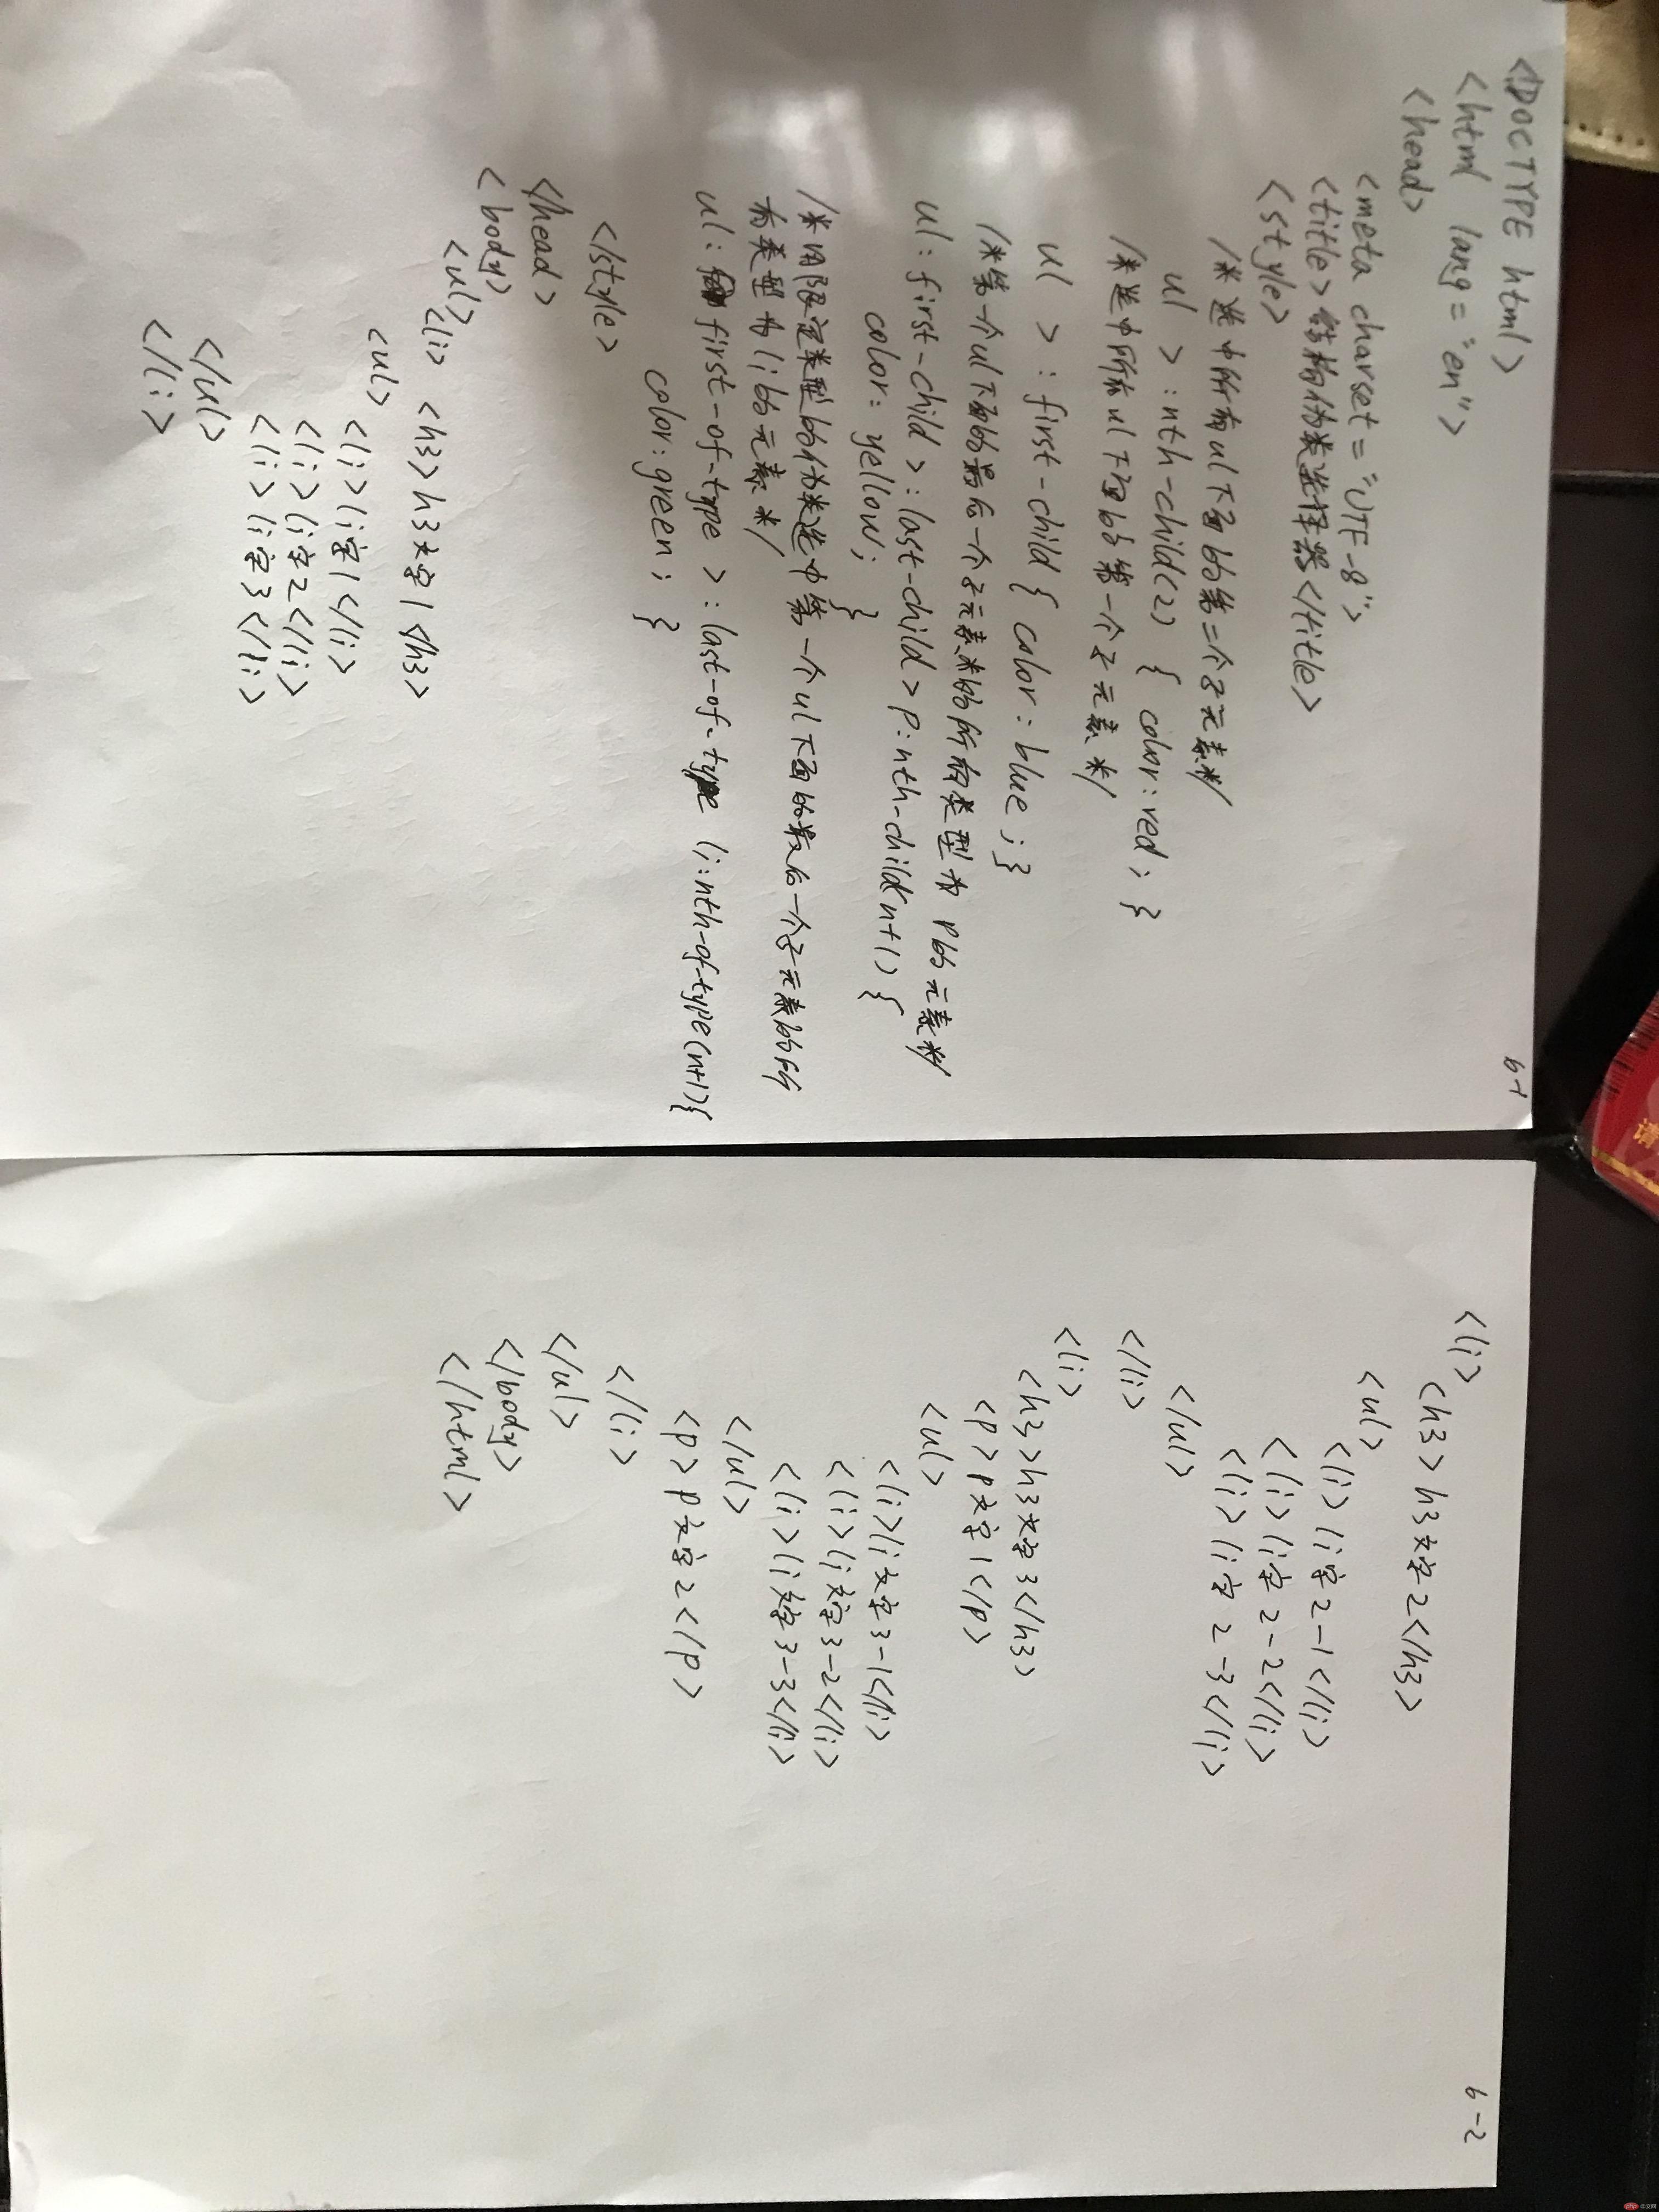 <!DOCTYPE html>
<html lang="en">
<head>
<meta charset="UTF-8">
<title>结构伪类选择器</title>
<style>
/*选中所有ul下面的第二个子元素*/
ul >:nth-child(2) { color:red; }
/*选中所有ul下面的第一个子元素*/
ul >:first-child { color:blue; }
/*第一个ul下面的最后一个子元素的所有类型为P的元素*/
ul:first-child >:last-child > P:nth-child(n+1) {
color: yellow; }
/*用限定类型的伪类选中第一个ul下面的最后一个子元素的所
有类型为li的元素*/
ul: first-of-type >:last-of-type li:nth-of-type(n+1){
color:green; }
</style>
</head>
<body>
<ul>
<li>
<h3>h3文字1</h3>
<ul>
<li>li字1</li>
<li>li字2</li>
<li>li字3</li>
</ul>
</li>
6-1
<li>
<h3>h3文字2</h3>
<ul>
<li>li字2-1</li>
<li>li字2-2</li>
<li>li字2-3</li>
</ul>
</li>
<li>
<h3>h3文字3</h3>
<p>p文字1</p>
<ul>
<li>li文字3-1</li>
<li>li文字3-2</li>
<li>li文字3-3</li>
</ul>
<p>p文字2</p>
</li>
</ul>
</body>
</html>
6-2
请
php 中文网